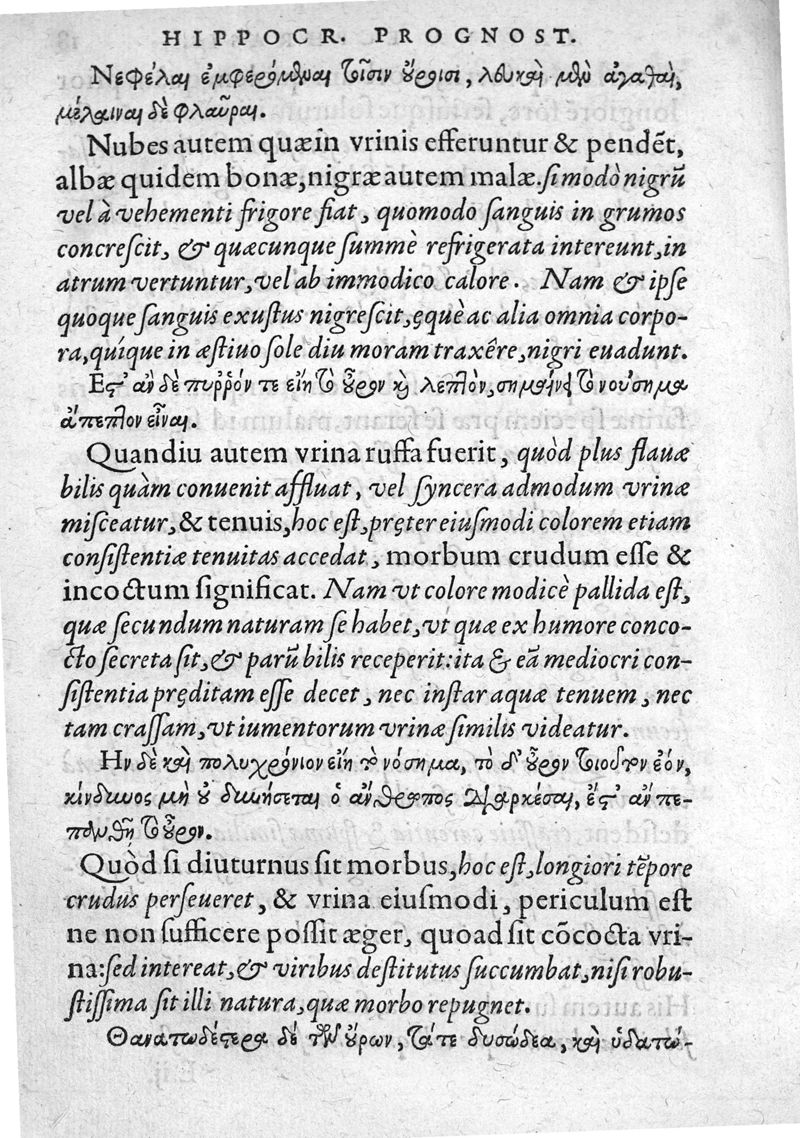 HIPPOCR. PROGNOST.
Νεφέλαι ἐμφερόμϑμαι τοῖσιν οὔροισι, λευκαὶ μὲν ἀγαθαὶ,
μέλαιναι δὲ φλαῦραι.
Nubes autem quæ in vrinis efferuntur & pendēt,
albæ quidem bonæ, nigræ autem malæ. si modò nigrū
vel à vehementi frigore fiat, quomodo sanguis in grumos
concrescit, & quæcunque summè refrigerata intereunt, in
atrum vertuntur, vel ab immodico calore. Nam & ipse
quoque sanguis exustus nigrescit, ęquè ac alia omnia corpo-
ra, quíque in æstiuo sole diu moram traxêre, nigri euadunt.
Εστ' ἂν δὲ πυῤῥόν τε εἴη τὸ οὖρον καὶ λεπτὸν, σημαίνει τὸ νούσημα
ἄπεπτον εἶναι.
Quandiu autem vrina ruffa fuerit, quòd plus flauæ
bilis quàm conuenit affluat, vel syncera admodum vrinæ
misceatur, & tenuis, hoc est, pręter eiusmodi colorem etiam
consistentiæ tenuitas accedat, morbum crudum esse &
incoctum significat. Nam vt colore modicè pallida est,
quæ secundum naturam se habet, vt quæ ex humore conco-
cto secreta sit, & parū bilis receperit: ita & eā mediocri con-
sistentia pręditam esse decet, nec instar aquæ tenuem, nec
tam crassam, vt iumentorum vrinæ similis videatur.
Ην δὲ καὶ πολυχρόνιον εἴη τὸ νόσημα, τὸ δ' οὖρον τοιοῦτον ἐόν,
κίνδυνος μὴ οὐ δυνήσεται ὁ ἄνθρωπος διαρκέσαι, ἔστ' ἂν πε-
πανθῇ τὸ οὖρον.
Quòd si diuturnus sit morbus, hoc est, longiori tēpore
crudus perseueret, & vrina eiusmodi, periculum est
ne non sufficere possit æger, quoad sit cōcocta vri-
na: sed intereat, & viribus destitutus succumbat, nisi robu-
stissima sit illi natura, quæ morbo repugnet.
Θανατωδέστερα δέ τῶν οὔρων, τάτε δυσώδεα, καὶ ὑδατώ-